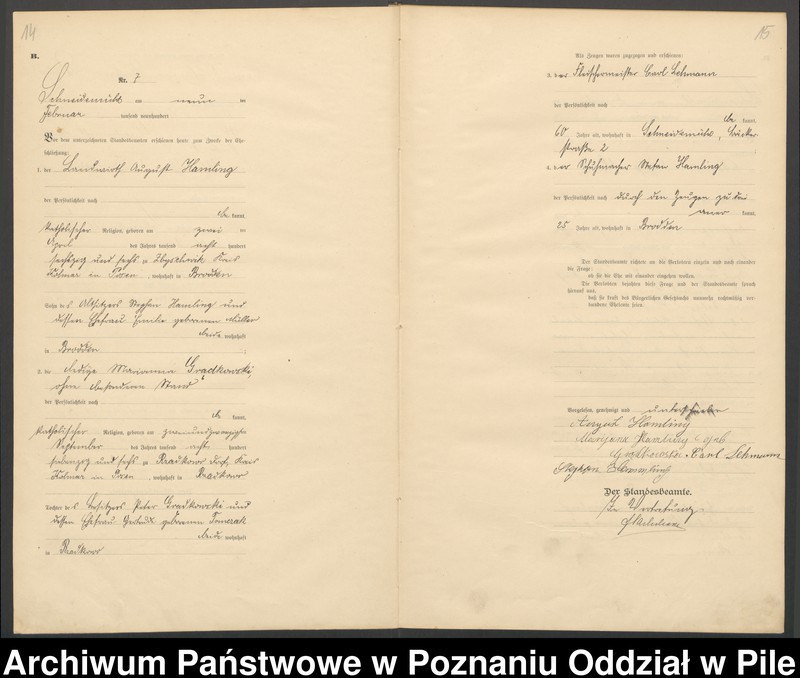 14
B.
Nr. 7
Schneidemühl am neun ten
Februar tausend neunhundert
Vor dem unterzeichneten Standesbeamten erschienen heute zum Zweck der Ehe-
schließung:
1. der Landwirth August Hamling
der Persönlichkeit nach
be kannt,
katholischer Religion, geboren am zwei ten
April des Jahres tausend acht hundert
sechszig und sechs zu Zbyschwik Kreis
Kolmar in Posen, wohnhaft in Brodden
Sohn des Altsitzers Stephan Hamling und
dessen Ehefrau Emilie geborenen Müller
beide wohnhaft
in Brodden
2. die ledige Marianna Gradkowski,
ohne besonderen Stand
der Persönlichkeit nach
be kannt,
katholischer Religion, geboren am zweiundzwanzigsten
September des Jahres tausend acht hundert
siebenzig und sechs zu Kreis
Kolmar in Posen, wohnhaft in
Tochter des Besitzers Peter Gradkowski und
dessen Ehefrau geborenen Tomczak
beide wohnhaft
in
15
Als Zeugen waren zugezogen und erschienen:
3. der Fleischermeister Carl Lehmann
der Persönlichkeit nach
be kannt,
60 Jahre alt, wohnhaft in Schneidemühl,
straße 2
4. der Schuhmacher Stefan Hamling
der Persönlichkeit nach durch den Zeugen zu drei
aner kannt,
25 Jahre alt, wohnhaft in Brodden
Der Standesbeamte richtete an die Verlobten einzeln und nach einander
die Frage:
ob sie die Ehe mit einander eingehen wollen.
Die Verlobten bejahten diese Frage und der Standesbeamte sprach
hierauf aus,
daß sie kraft des Bürgerlichen Gesetzbuchs nunmehr rechtmäßig ver-
bundene Eheleute seien.
Vorgelesen, genehmigt und unterschrieben
August Hamling
Marjana Hamling geb
Gradkowska Carl Lehmann
Stephan Hamling
Der Standesbeamte.
In Vertretung
Archiwum Państwowe w Poznaniu Oddział w Pile